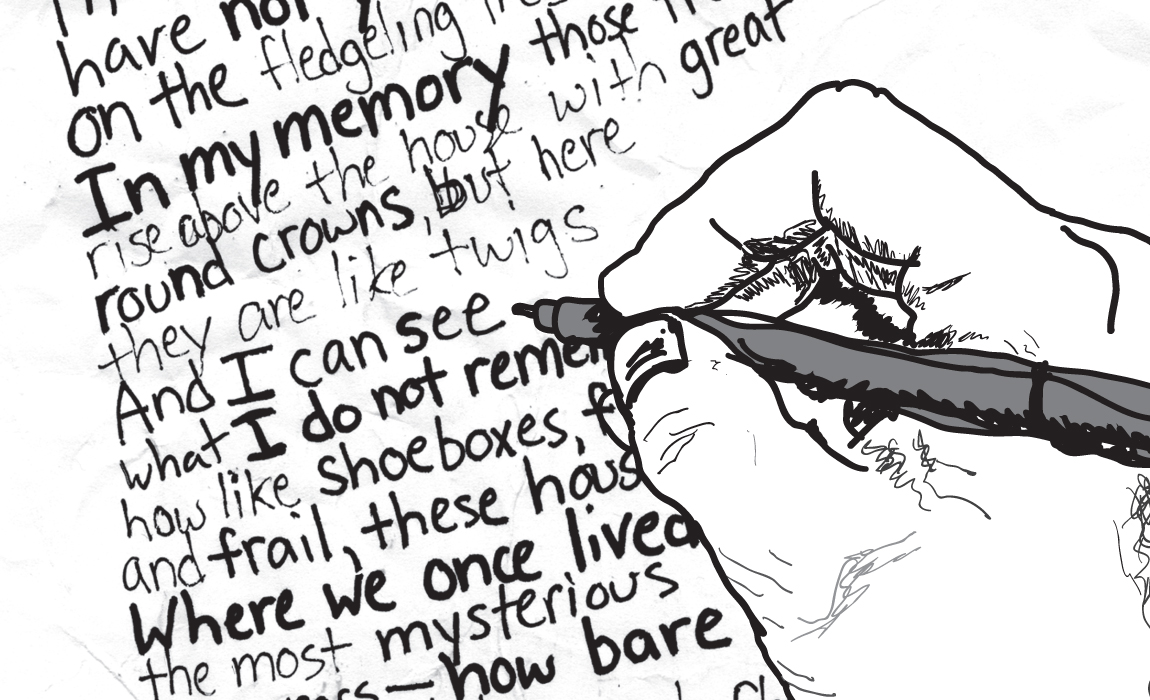 have not
on the fledgeling
In my memory those
rise above the house with great
round crowns, but here
they are like twigs
And I can see
what I do not remem
how like shoeboxes, f
and frail, these hous
Where we once lived
the most mysterious
how bare